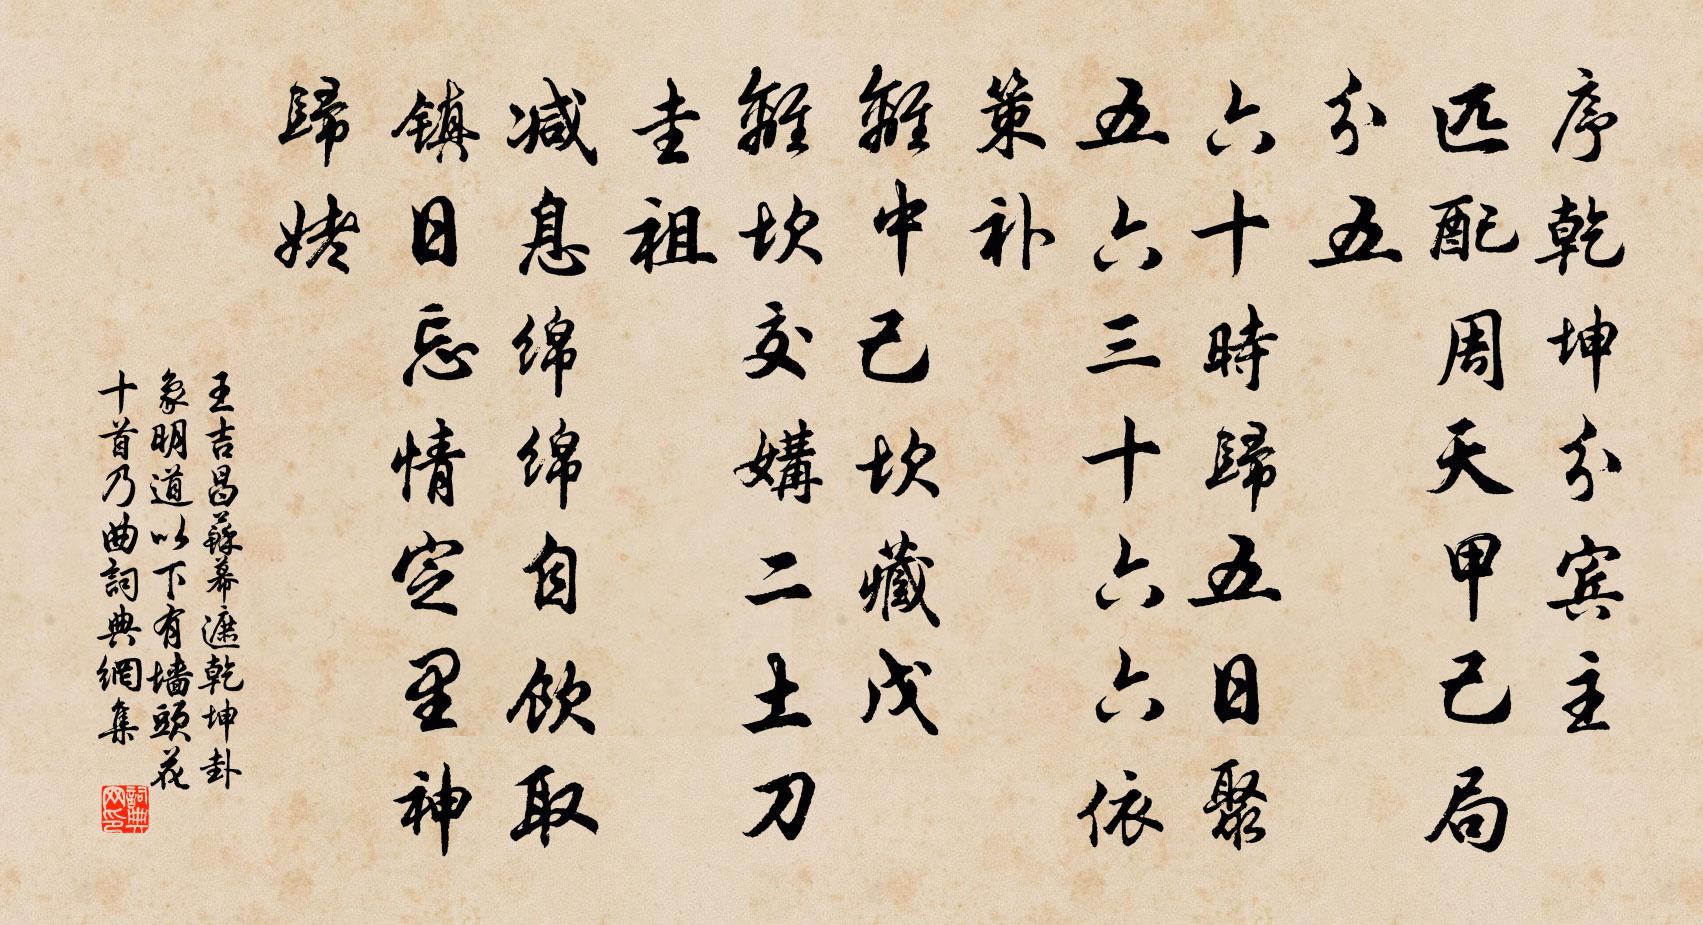 序乾坤分宾主
匹配周天甲己局
分五
六十時歸五日聚
五六三十六六依
策补
離中己坎藏戊
離坎交媾二土刀
圭祖
减息绵绵自饮取
镇日忘情定里神
歸姥
王吉昌蘇幕遮乾坤卦
象明道以下有墙頭花
十首乃曲詞典網集
詞典
网印